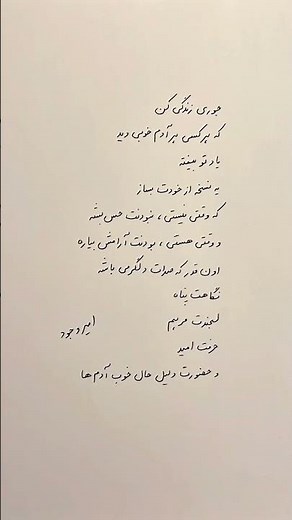 جوری زندگی کن
که هر کسی هر آدم خوبی دید
یاد تو بیفته
یه نسخه از خودت بساز
که وقتی نیستی، نبودنت حس بشه
و وقتی هستی، بودنت آرامش بیاره
اون قدر که صدات دلگرمی باشه
نگاهت پناه
لبخندت مرهم
امیر وجود
حرفت امید
و حضورت دلیل حال خوب آدم ها